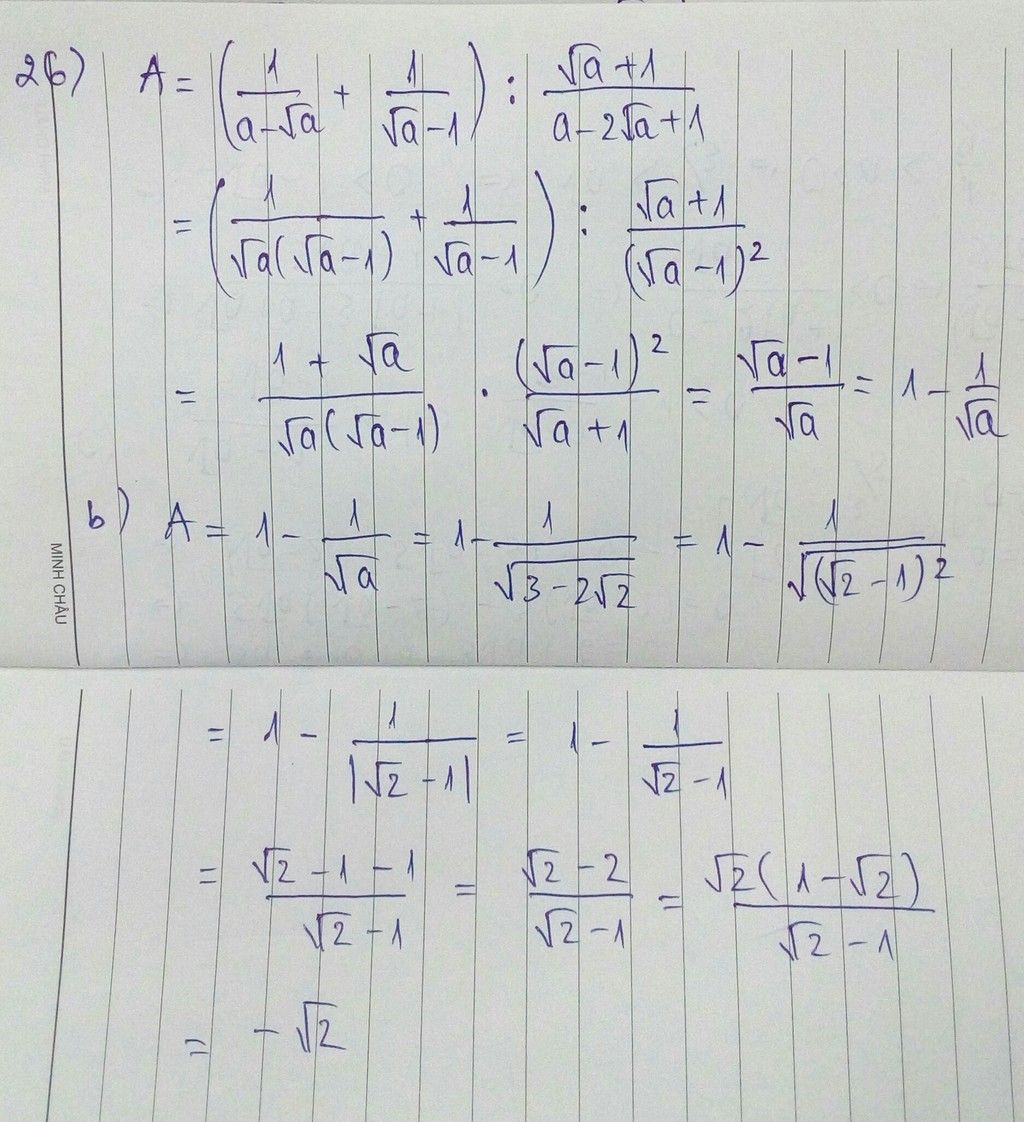 26) A = (1/(a-√a) + 1/(√a-1)) : (√a+1)/(a-2√a+1)
= (1/(√a(√a-1)) + 1/(√a-1)) : (√a+1)/(√a-1)²
= (1+√a)/(√a(√a-1)) . (√a-1)²/(√a+1) = (√a-1)/√a = 1 - 1/√a
b) A = 1 - 1/√a = 1 - 1/√(3-2√2) = 1 - 1/√((√2-1)²)
MINH CHÂU
= 1 - 1/|√2-1| = 1 - 1/(√2-1)
= (√2-1-1)/(√2-1) = (√2-2)/(√2-1) = √2(1-√2)/(√2-1)
= -√2